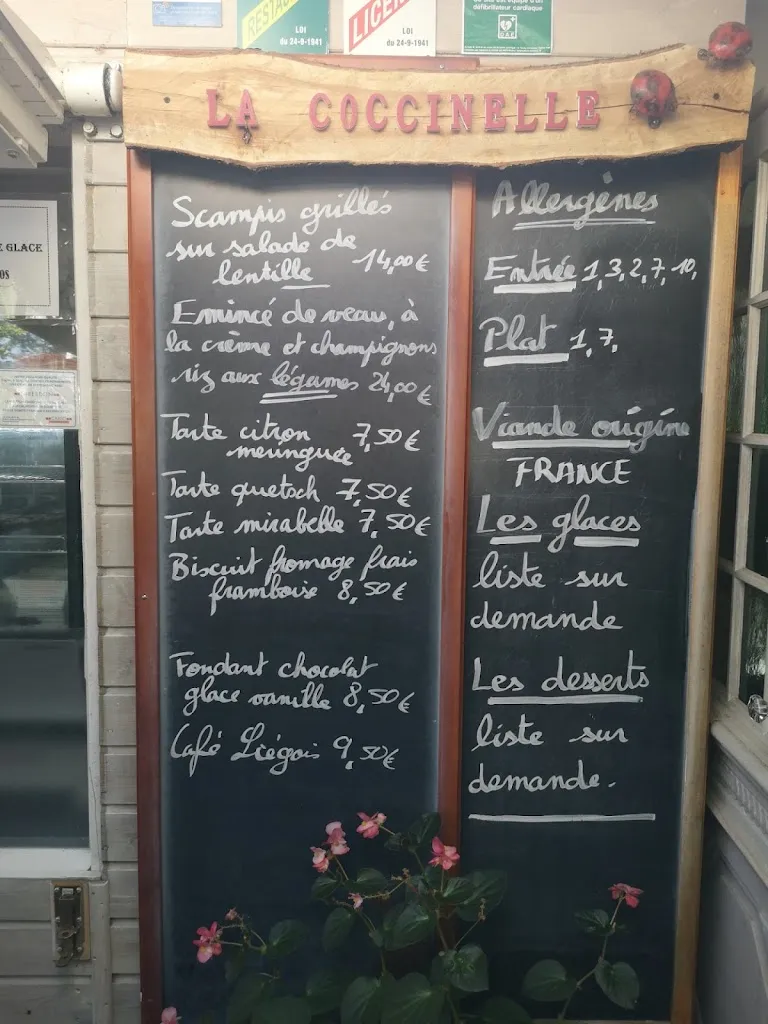 RESTAU
LOI
du 24-9-1941
LICE
LOI
du 24-9-1941
défibrillateur cardiaque
LA COCCINELLE
E GLACE
OS
Scampis grillés
sur salade de
lentille 14,00€
Emincé de veau, à
la crème et champignons
riz aux légumes 24,00€
Tarte citron 7,50€
meringuée
Tarte quetsch 7,50€
Tarte mirabelle 7,50€
Biscuit fromage frais
framboise 8,50€
Fondant chocolat
glace vanille 8,50€
Café Liégois 9,50€
Allergènes
Entrée 1,3,2,7,10,
Plat 1,7,
Viande origine
FRANCE
Les glaces
liste sur
demande
Les desserts
liste sur
demande.